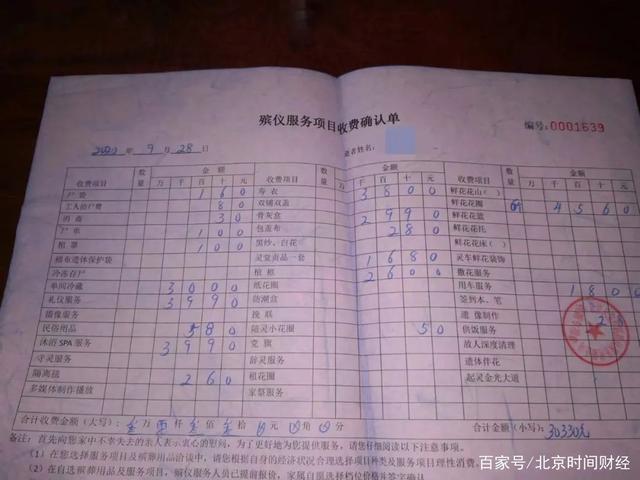 殡仪服务项目收费确认单
编号:0001639
年 9 月 28 日 逝者姓名:
收费项目 数量 金额 万 千 百 十 元 收费项目 数量 金额 万 千 百 十 元 收费项目 数量 金额 万 千 百 十 元
尸 袋 160 寿 衣 3800 鲜花花山( )
工人抬尸费 80 双铺双盖 鲜花花圈 4560
消 毒 30 骨灰盒 2990 鲜花花篮
尸 车 100 包盖布 280 鲜花花托
租 罩 100 黑纱、白花 鲜花花床( )
棉布遗体保护袋 灵堂贡品一套 1680 灵车鲜花装饰
冷冻存尸 租棺 2600 撒花服务
单间冷藏 3000 纸花圈 用车服务 1800
礼仪服务 3990 防潮盒 签到本、笔
摄像服务 挽 联 遗 像制作
民俗用品 580 随灵小花圈 50 供饭服务
沐浴SPA服务 3990 党 旗 故人深度清理
守灵服务 辞灵服务 遗体伴花
隔离毯 260 租花圈 起灵金光大道
多媒体制作播放 家祭服务
合计收费金额(大写): 万 仟 佰 拾 元 角 分 合计金额(小写): 30330元
备注:首先向您家中不幸失去的亲人表示衷心的慰问,为了更好地为您提供服务,请您仔细阅读以下注意事项。
(1)在您选择服务项目及殡葬用品洽谈中,请您根据自身的经济状况合理选择项目种类及服务项目理性消费
(2)在自选殡葬用品及服务项目,殡仪服务人员已提前报价,家属自愿选择档位价格并签字确认
百家号/北京时间财经